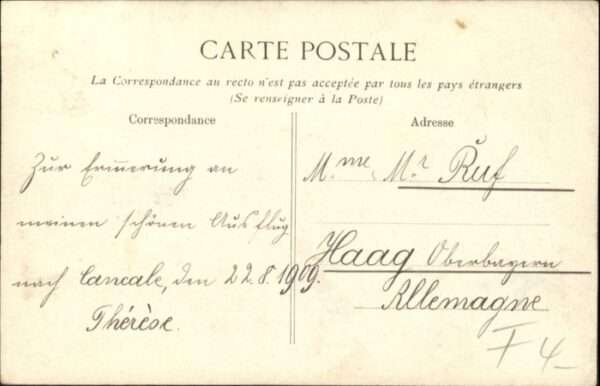 CARTE POSTALE
La Correspondance au recto n'est pas acceptée par tous les pays étrangers
(Se renseigner à la Poste)
Correspondance
Adresse
Zur Erinnerung an
meinen schönen Ausflug
nach Cancale, den 22.8.1909.
Thérèse.
Mme, Mr Ruf
Haag Oberbayern
Allemagne
F 4-